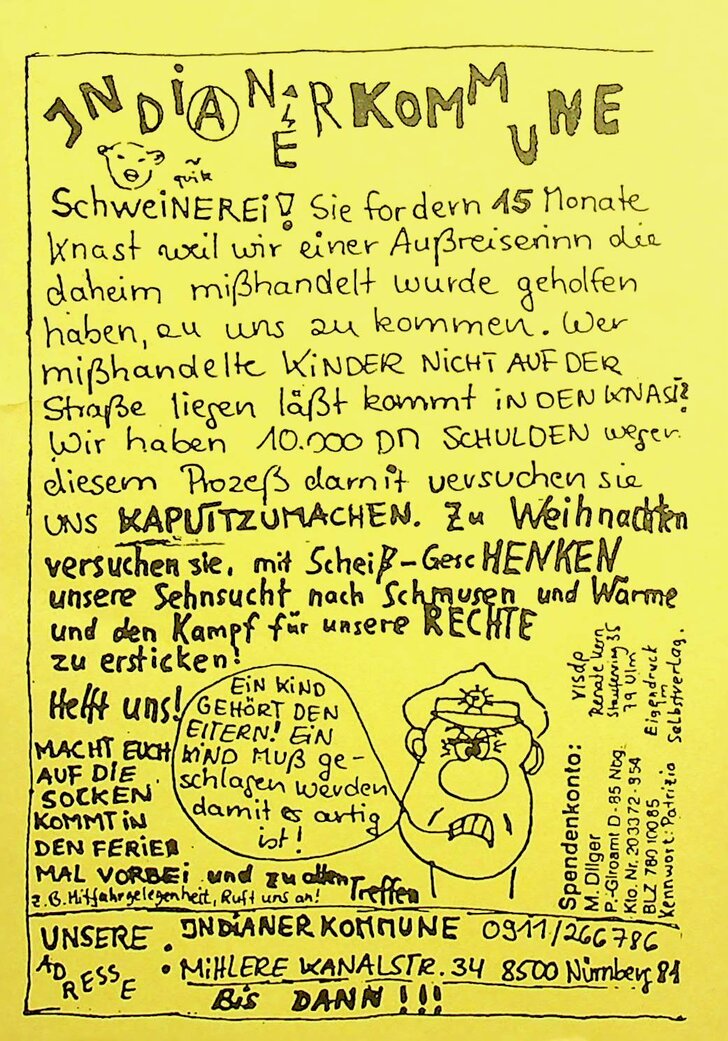 INDIANERKOMMUNE
quik
SchweiNEREi! Sie fordern 15 Monate
Knast weil wir einer Außreiserinn die
daheim mißhandelt wurde geholfen
haben, zu uns zu kommen. Wer
mißhandelte KINDER NICHT AUF DER
Straße liegen läßt kommt iN DEN KNAST?
Wir haben 10.000 DM SCHULDEN wegen
diesem Prozeß damit versuchen sie
UNS KAPUTTZUMACHEN. Zu Weihnachten
versuchen sie, mit Scheiß-GescHENKEN
unsere Sehnsucht nach Schmusen und Wärme
und den Kampf für unsere RECHTE
zu ersticken!
Helft uns!
MACHT EUCH
AUF DIE
SOCKEN
KOMMT IN
DEN FERIEN
MAL VORBEI und zu allen Treffen
z.B. Mitfahrgelegenheit, Ruft uns an!
EiN KIND
GEHÖRT DEN
ElTERN! EiN
KIND MUß ge-
schlagen werden
damit es artig
ist!
Spendenkonto:
M. Dilger
P.-Giroamt D-85 Nbg.
Kto. Nr. 203372-854
BLZ 760 100 85
Kennwort: Patrizia
VISdP
Renate Kern
79 Ulm
Eigendruck
im
Selbstverlag.
UNSERE ADRESSE
INDIANER KOMMUNE 0911/266786
MiHLERE KANALSTR. 34 8500 Nürnberg 81
BiS DANN!!!